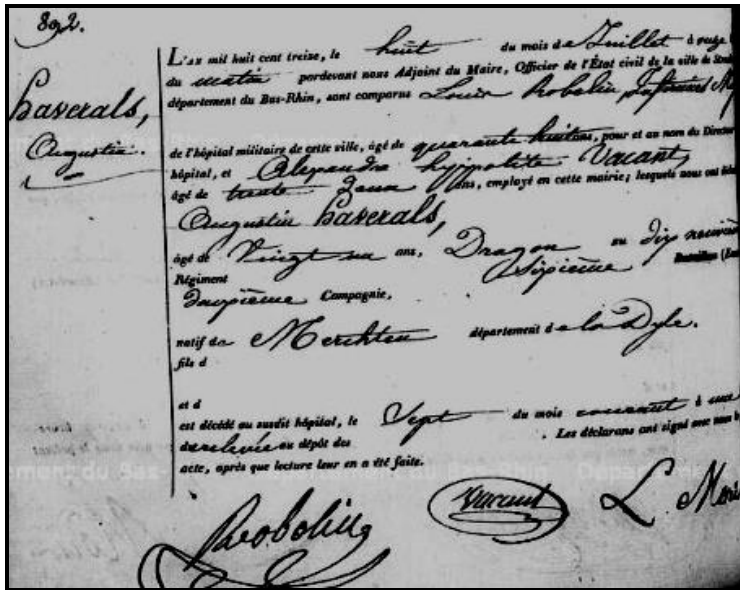 802.
Haverals,
Augustin.
L'AN mil huit cent treize, le huit du mois de Juillet à onze
du matin pardevant nous Adjoint du Maire, Officier de l'État civil de la ville de
département du Bas-Rhin, sont comparus Louis Robelin
de l'hôpital militaire de cette ville, âgé de quarante huit ans, pour et au nom du Director
hôpital, et Alexandre hyppolite Vacant
âgé de trente Deux ans, employé en cette mairie; lesquels nous ont
Augustin Haverals,
âgé de Vingt un ans, Dragon au dix neuvième
Régiment Bataillon
Deuxième Compagnie,
natif de Merchten département de la Dyle.
fils d
et d
est décédé au susdit hôpital, le Sept du mois courant à une
de relevée au dépôt des . Les déclarans ont signé avec nous
acte, après que lecture leur en a été faite.
Robelin
Vacant